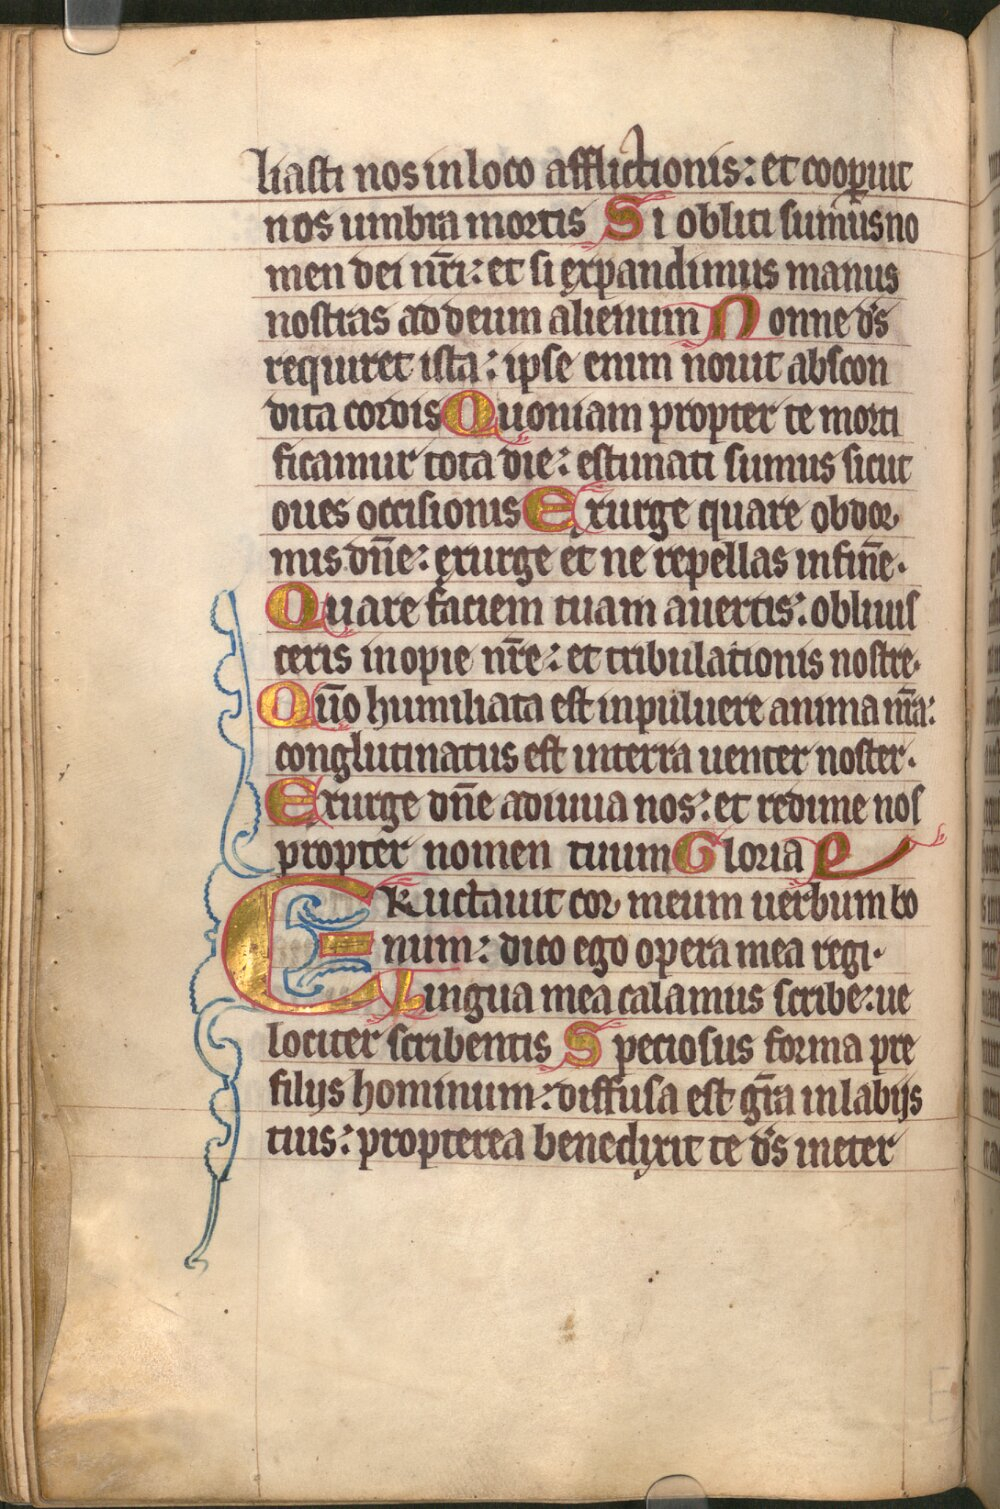 liasti nos in loco afflictionis: et coop̲uit
nos umbra mortis Si obliti sumus no
men dei nr̄i: et si expandimus manus
nostras ad deum alienum Nonne ds̄
requiret ista: ipse enim nouit abscon
dita cordis Quoniam propter te morti
ficamur tota die: estimati sumus sicut
oues occisionis Exurge quare obdor
mis dn̄e: exurge et ne repellas in fine.
Quare faciem tuam auertis: obliuis
ceris inopie nr̄e: et tribulationis nostre.
Qūo humiliata est in puluere anima nr̄a:
conglutinatus est in terra uenter noster.
Exurge dn̄e adiuua nos: et redime nos
propter nomen tuum Gloria P
ERuctauit cor meum uerbum bo
num: dico ego opera mea regi.
Lingua mea calamus scribe: ue
lociter scribentis Speciosus forma pre
filijs hominum: diffusa est gr̄a in labijs
tuis: propterea benedixit te ds̄ in eter